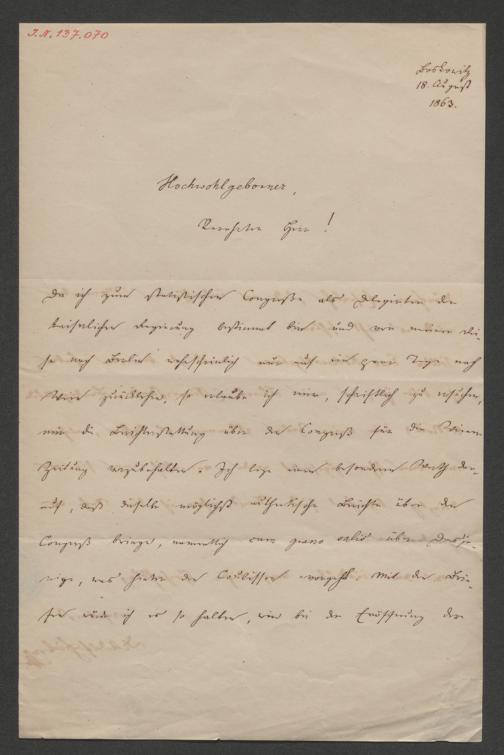 J.N. 137.070
Boskowitz
18. August
1863.
Hochwohlgeborner,
Verehrter Herr!
Da ich zum statistischen Congresse als Delegirter der
kaiserlichen Regierung bestimmt bin und von meiner Rei-
se nach Berlin wahrscheinlich nur auf ein paar Tage nach
Wien zurückkehre, so erlaube ich mir, schriftlich zu ersuchen,
mir die Berichterstattung über den Congreß für die Wiener
Zeitung vorzubehalten. Ich lege einen besonderen Werth dar-
auf, daß dieselbe möglichst authentische Berichte über den
Congreß bringe, namentlich cum grano salis über dasje-
nige, was hinter den Coulissen vorgeht. Mit den Brie-
fen will ich es so halten, wie bei der Eröffnung der